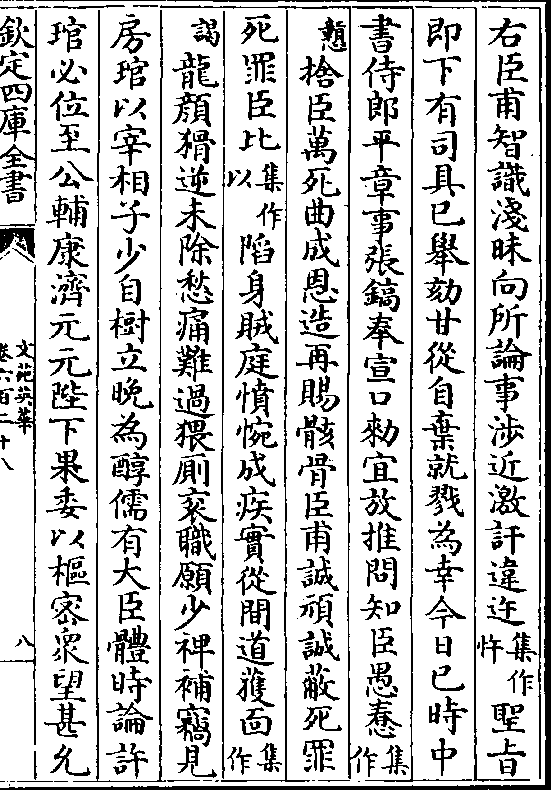 右臣甫智識淺昧向所論事涉近激訐違迕集作忤聖旨
即下有司具已舉劾甘從自棄就戮為幸今日巳時中
書侍郎平章事張鎬奉宣口勑宜放推問知臣愚惷集作
戇捨臣萬死曲成恩造再賜骸骨臣甫誠頑誠蔽死罪
死罪臣比集作以陷身賊庭憤惋成疾實從間道獲面集作
謁龍顔猾逆未除愁痛難過猥厠衮職願少裨補竊見
房琯以宰相子少自樹立晚為醇儒有大臣體時論許
琯必位至公輔康濟元元陛下果委以樞密衆望甚允
欽定四庫全書
文苑英華
卷六百二十八
八